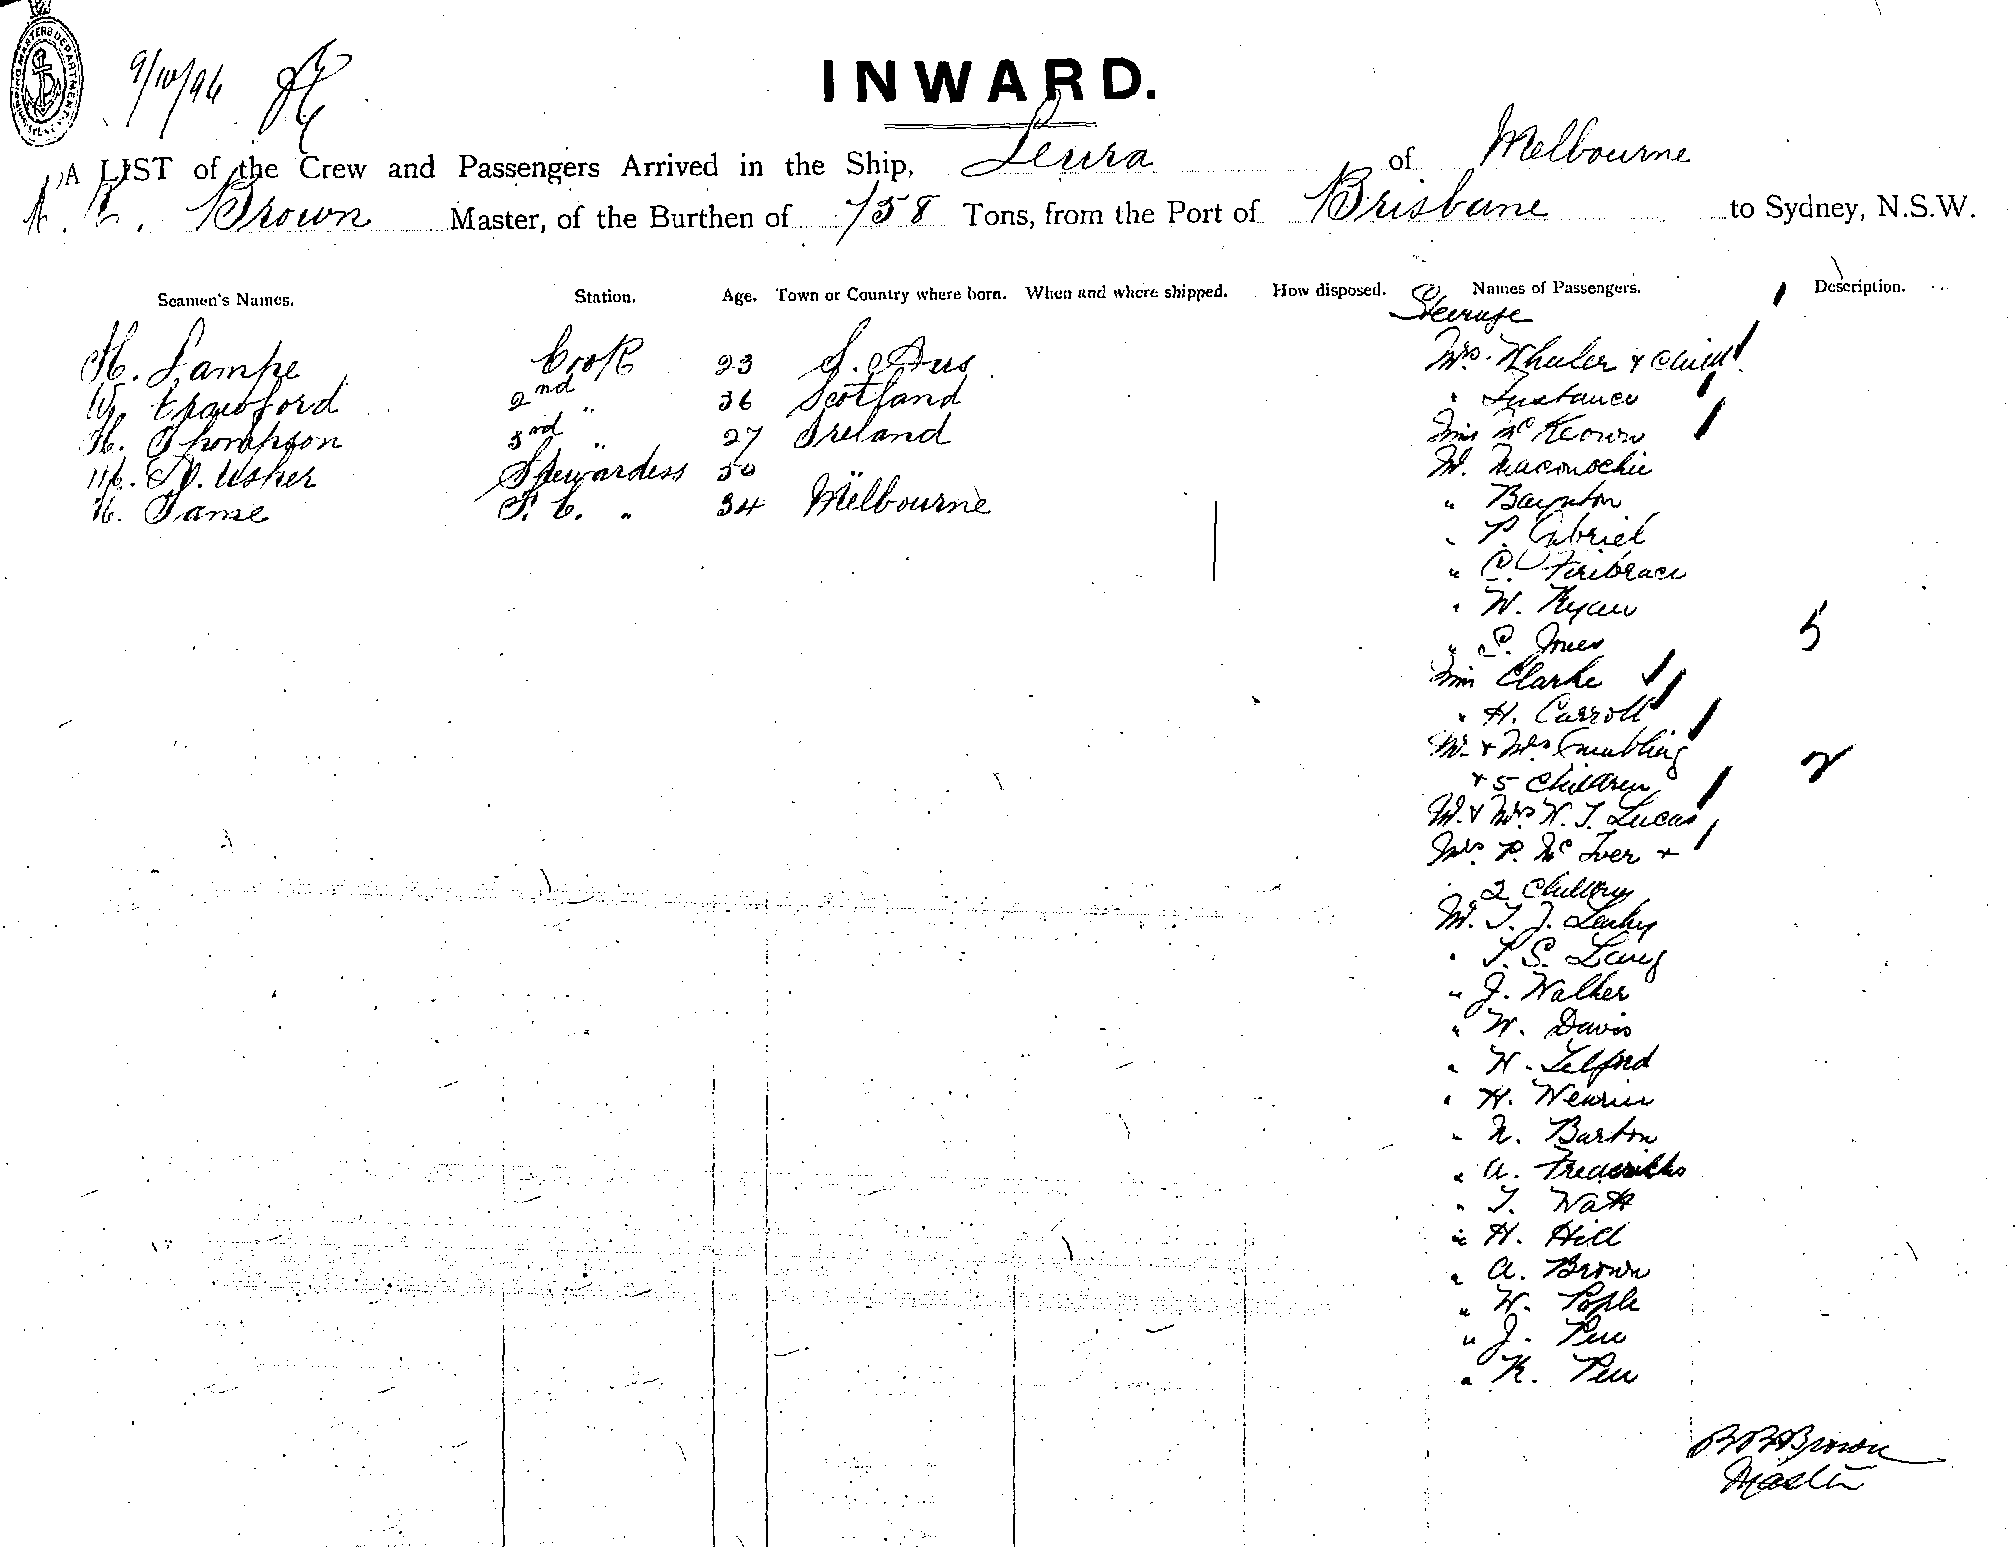 9/10/96
INWARD.
A LIST of the Crew and Passengers Arrived in the Ship, Leura of Melbourne
Brown Master, of the Burthen of 758 Tons, from the Port of Brisbane to Sydney, N.S.W.
Seamen's Names. Station. Age. Town or Country where born. When and where shipped. How disposed. Names of Passengers. Description.
Steerage
H. Lampe Cook 23 S. Aus Mrs. Whaler + child
W. Crawford 2nd " 36 Scotland " Instance
H. Thompson 3rd " 27 Ireland Miss McKeown
Usher Stewardess 30 M. Maconochie
H. Tame F. C. " 34 Melbourne " Baynton
" P. Gabriel
" C. Firebrace
" W. Ryan
" S. Jones
5
Miss Clarke
" H. Carroll
Mr. + Mrs
+ 5 Children
2
Mr. + Mrs W. T. Lucas
Mrs. P. McIver +
2 Children
Mr. T. J. Leahy
" S. Lang
" J. Walker
" W. Davis
" W. Telford
" H.
" N. Barton
" A. Fredericks
" T. Watt
" H. Hill
" A. Brown
" W. Pople
" J. Pen
" K. Pen
Brown
Master